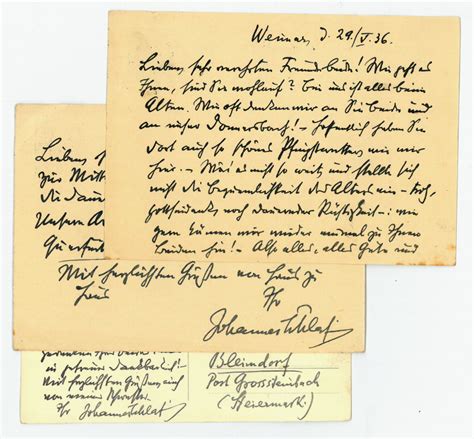 Weimar, d. 29./V. 36.
Liebes, sehr verehrtes Freundespaar! Wie geht es
Ihnen, sind Sie wohlauf? Bei uns ist alles beim
Alten. Wie oft denken wir an Sie beide und
an unser Donnersbach! – Hoffentlich haben Sie
dort auch so schönes Pfingstwetter wie wir
hier. – Wär' es nicht so weit und stellte sich
nicht die Bequemlichkeit des Alters ein – trotz,
gottseidank, noch dauernder Rüstigkeit –: wie
gern kämen wir wieder einmal zu Ihnen
beiden hin! – Also alles, alles Gute und
Liebes,
zur
die
Unsere
Mit herzlichsten Grüßen von Haus zu
Haus
Ihr
Johannes Schlaf
in
Mit herzlichsten Grüßen auch
von meiner Schwester
Ihr Johannes Schlaf
Bleindorf
Post Grosssteinbach
(Steiermark.)